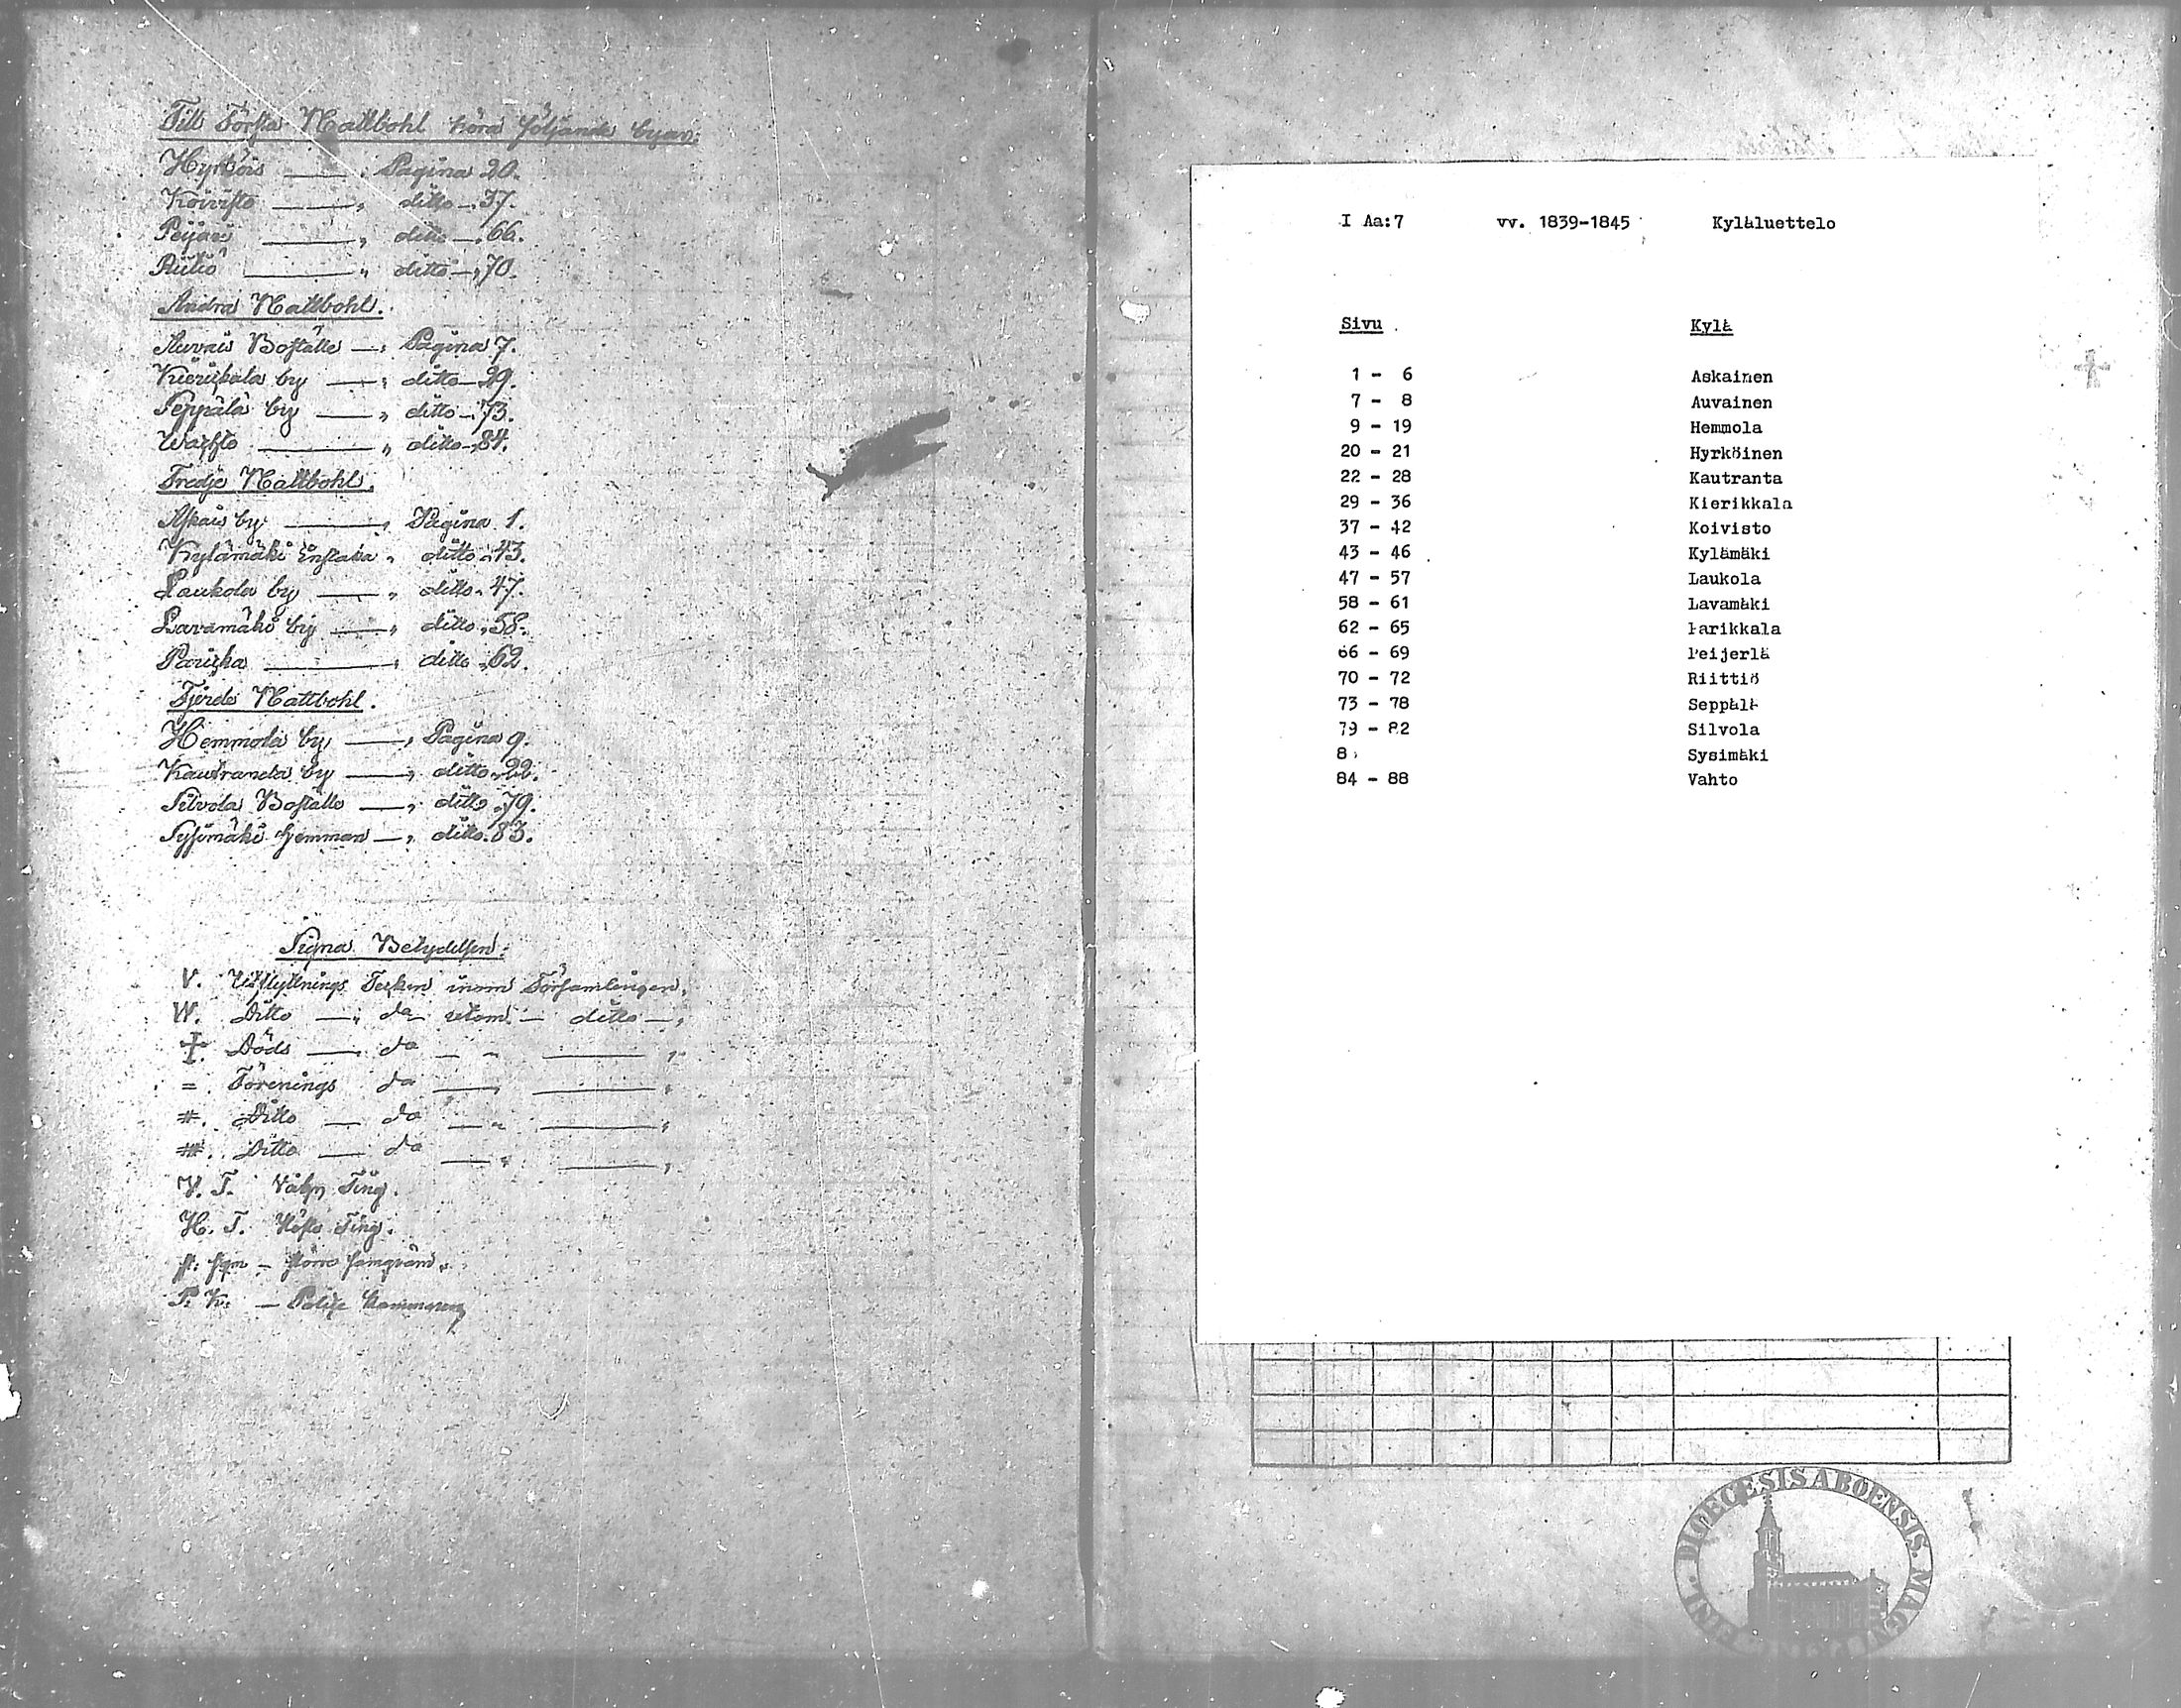 Till Första Mattbohl höra följande byar:
Hyrköis — Pagina 20.
Koivisto — ditto — 37.
Peijari — ditto — 66.
Riitiö — ditto — 70.
Andra Mattbohl.
Auvais Boställe — Pagina 7.
Kierickala by — ditto — 29.
Seppälä by — ditto — 73.
Wachto — ditto — 84.
Tredje Mattbohl.
Askais by — Pagina 1.
Kylämäki Enstaka " ditto " 43.
Laukola by — ditto " 47.
Lavamäki by — ditto " 58.
— ditto " 62.
Fjerde Mattbohl.
Hemmola by — Pagina 9.
Kautranda by — ditto " 22.
Silvola Boställe — ditto " 79.
Sysimäki Hemman — ditto " 83.
Signa Betydelsen:
V. Utflyttnings Tecken inom Församlingen.
W. Ditto — do utom — ditto —
†. Döds — do — —
=. Förenings do — —
#. Ditto — do — —
Ditto — do — —
V. T. Ting.
H. T. Höste Ting.
P. K. —
I Aa:7 vv. 1839-1845 Kyläluettelo
Sivu Kylä
1 - 6 Askainen
7 - 8 Auvainen
9 - 19 Hemmola
20 - 21 Hyrköinen
22 - 28 Kautranta
29 - 36 Kierikkala
37 - 42 Koivisto
43 - 46 Kylämäki
47 - 57 Laukola
58 - 61 Lavamäki
62 - 65 Parikkala
66 - 69 Peijerlä
70 - 72 Riittiö
73 - 78 Seppälä
79 - 82 Silvola
83 Sysimäki
84 - 88 Vahto
DIOECESIS ABOENSIS. MAGNI